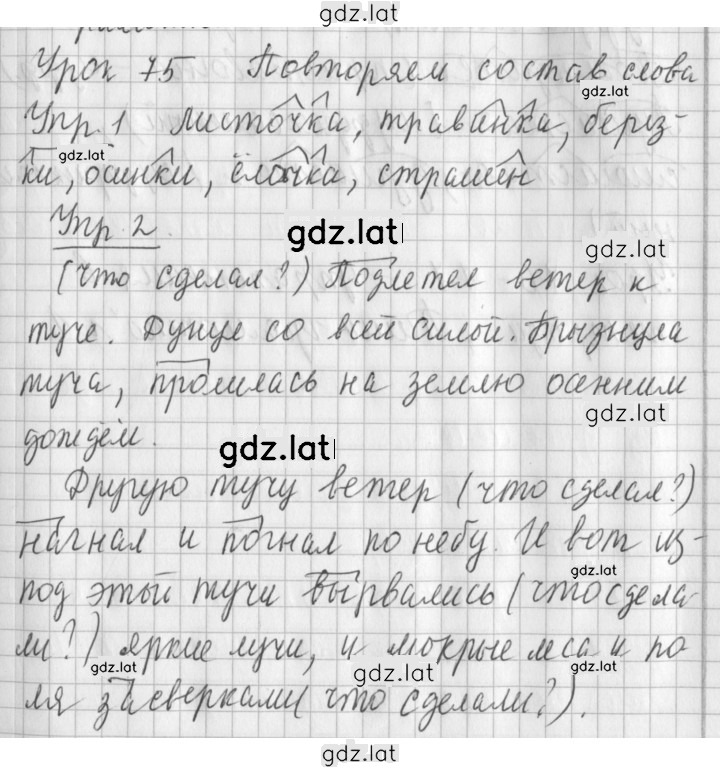 gdz.lat
Урок 75 Повторяем состав слова
Упр. 1 листочка, траванка, берёз-
gdz.lat
ки, осинки, ёлочка, страшен
Упр. 2
gdz.lat
gdz.lat
(что сделал?) Подлетел ветер к
туче. Дунуе со всей силой. Брызнула
туча, пролилась на землю осенним
gdz.lat
дождём.
gdz.lat
Другую тучу ветер (что сделал?)
нагнал и погнал по небу. И вот из-
gdz.lat
под этый тучи вырвались (что сдела-
ли?) яркие лучи, и мокрые леса и по-
gdz.lat
gdz.lat
ля засверкали (что сделали?).
gdz.lat